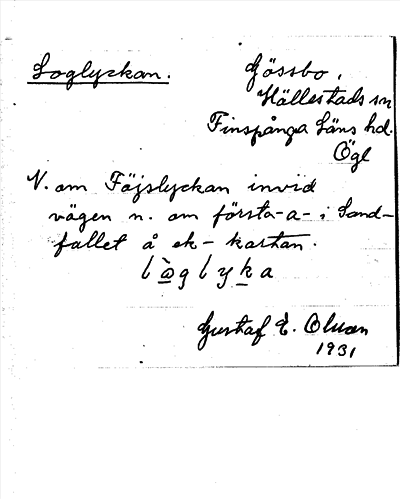 Loglyckan.
Gössbo,
Hällestads sn
Finspånga Läns hd.
Ögl
N. om Föjslyckan invid
vägen n. om första-a- i Sand-
fallet å ek-kartan.
lò̱glyḵa
Gustaf E.
1931